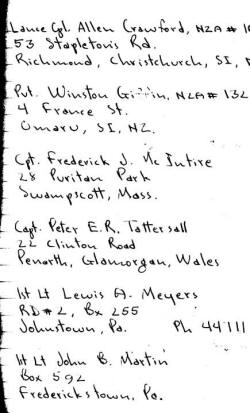 Lance Cpl Allen Crawford, NZA # 10
53 Stapletons Rd.
Richmond, Christchurch, SI,
Pvt. Winston Griffin, NZA # 132
4 France St.
Omaru, SI, NZ.
Cpt. Frederick J. Mc Intire
28 Puritan Park
Swampscott, Mass.
Capt. Peter E.R. Tattersall
22 Clinton Road
Penarth, Glamorgan, Wales
1st Lt Lewis A. Meyers
RD # 2, Bx 255
Johnstown, Pa. Ph 44111
1st Lt John B. Martin
Box 592
Fredericktown, Pa.